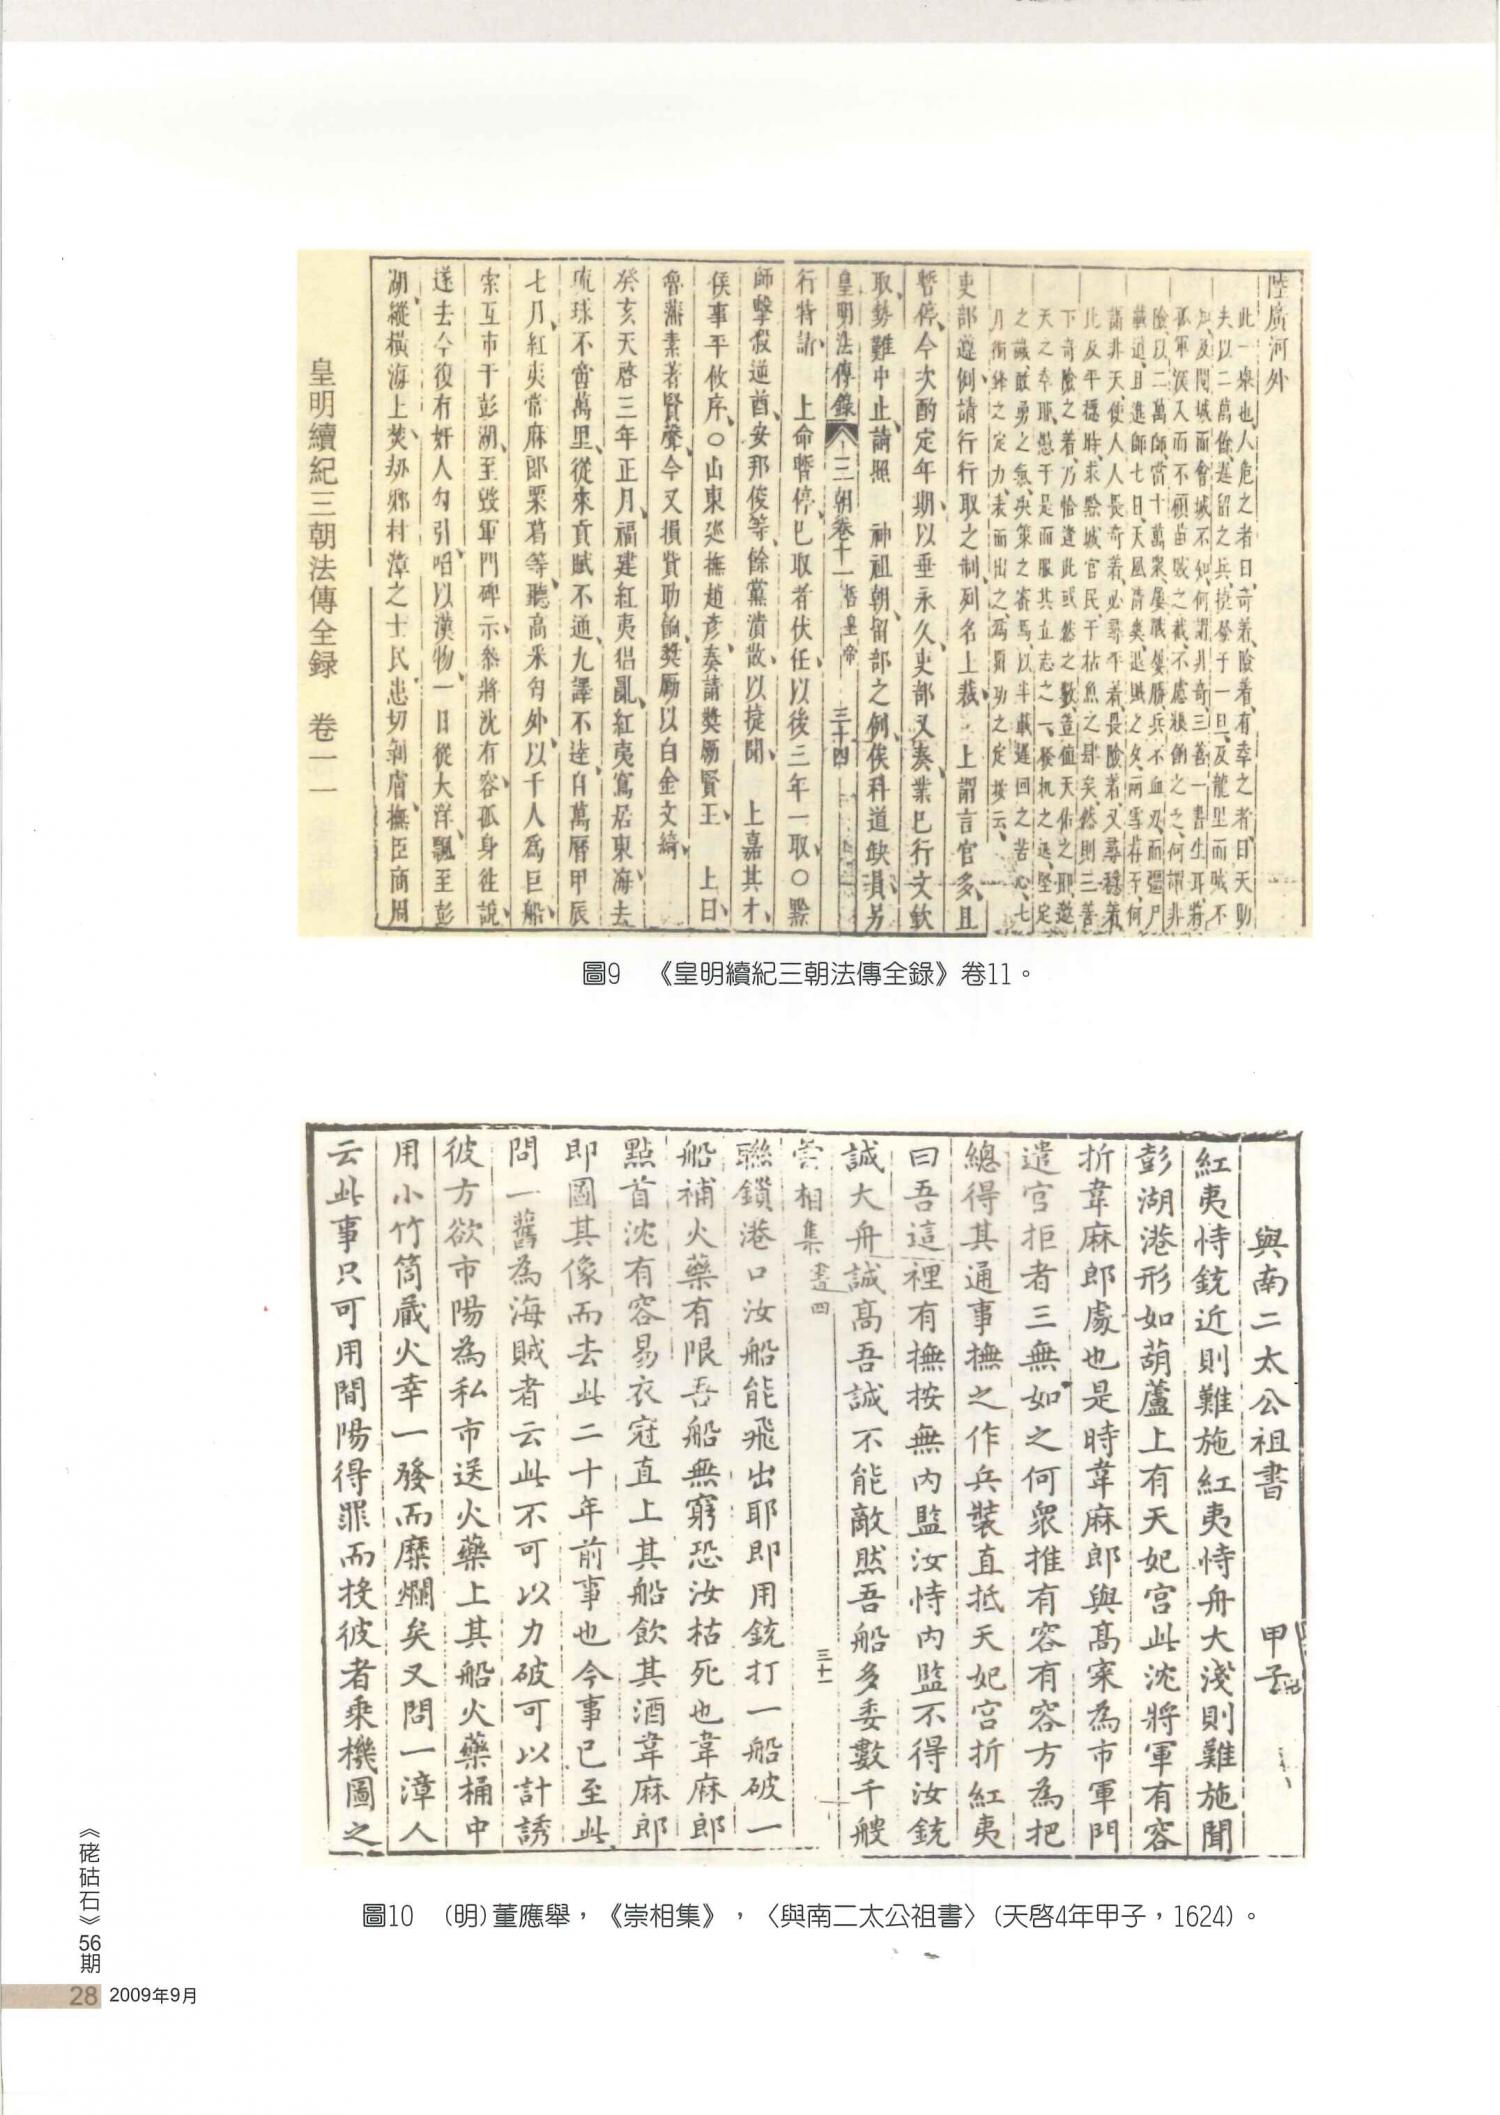 陸廣河外
此一舉也人危之者曰奇着險着有幸之者曰天助
夫以二萬餘遲留之兵捷發于一旦及龍里而賊不
知及閩城而會城不知何謂非奇三善一書生耳將
孤軍深入而不顧苗賊之截不慮狼倒之之何謂非
險以二萬師當十萬眾屢戰屢勝兵不血刃而彊尸
載道且進師七日天風清爽退賊之夕雨雪荐至何
謂非天使人人長奇着必尋平着畏險着又尋穩着
此及平穩時求黔城官民于枯魚之肆矣然則三善
下奇險之着乃恰逢此或然之數豈值天佑之耶邀
天之幸耶愚于是而服其立志之一發机之迅堅定
之識敢勇之氣決策之審焉以半載遲回之苦心七
月衝鋒之定力表而出之為
吏部遵例請行行取之制列名上裁 上謂言官多且
暫停今次酌定年期以垂永久吏部又奏業已行文欽
取勢難中止請照 神祖朝留部之例俟科道缺損另
皇明法傳錄 三朝卷十一 哲皇帝 三十四
行特請 上命暫停已取者伏任以後三年一取○黔
師擊殺逆酋安那俊等餘黨潰散以捷聞 上嘉其才
俟事平攸序○山東廵撫趙彥奏請獎勵賢王 上曰
魯藩素著賢聲今又損貲助餉獎勵以白金文綺
癸亥天啓三年正月福建紅夷倡亂紅夷窩居東海去
琉球不啻萬里從來貢賦不通九譯不逹自萬曆甲辰
七月紅夷常麻郎栗葛等聽高釆勾外以千人爲巨船
索互市于彭湖至毀軍門碑示叅將沈有容孤身徃說
遂去今復有奸人勾引啗以漢物一日從大洋飄至彭
湖縱橫海上焚刼鄉村漳之士民患切剝膚撫臣商周
皇明續紀三朝法傳全録 卷一一
圖9 《皇明續紀三朝法傳全錄》卷11。
與南二太公祖書 甲子
紅夷恃銃近則難施紅夷恃舟大淺則難施聞
彭湖港形如葫蘆上有天妃宫此沈將軍有容
折韋麻郎處也是時韋麻郎與高寀為市軍門
遣官拒者三無如之何衆推有容有容方為把
總得其通事撫之作兵裝直抵天妃宫折紅夷
曰吾這裡有撫按無内監汝恃内監不得汝銃
誠大舟誠高吾誠不能敵然吾船多委數千艘
崇相集 書四 三十一
聯鎖港口汝船能飛出耶即用銃打一船破一
船補火藥有限吾船無窮恐汝枯死也韋麻郎
點首沈有容易衣冠直上其船飲其酒韋麻郎
即圖其像而去此二十年前事也今事已至此
問一舊為海賊者云此不可以力破可以計誘
彼方欲市陽為私市送火藥上其船火藥桶中
用小竹筒藏火幸一發而糜爛矣又問一漳人
云此事只可用間陽得罪而投彼者乘機圖之
圖10 (明)董應舉，《崇相集》，〈與南二太公祖書〉(天啓4年甲子，1624)。
《硓𥑮石》56期
28 2009年9月